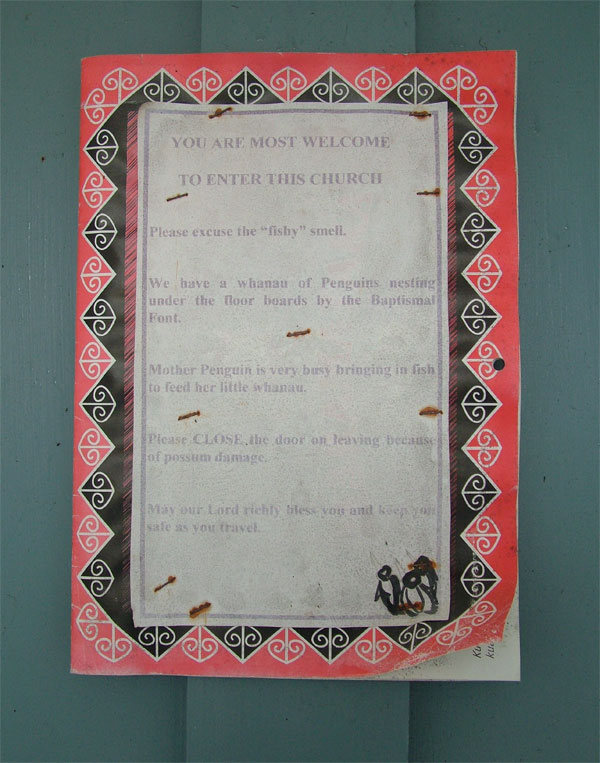 YOU ARE MOST WELCOME
TO ENTER THIS CHURCH
Please excuse the “fishy” smell.
We have a whanau of Penguins nesting
under the floor boards by the Baptismal
Font.
Mother Penguin is very busy bringing in fish
to feed her little whanau.
Please CLOSE the door on leaving because
of possum damage.
May our Lord richly bless you and keep you
safe as you travel.